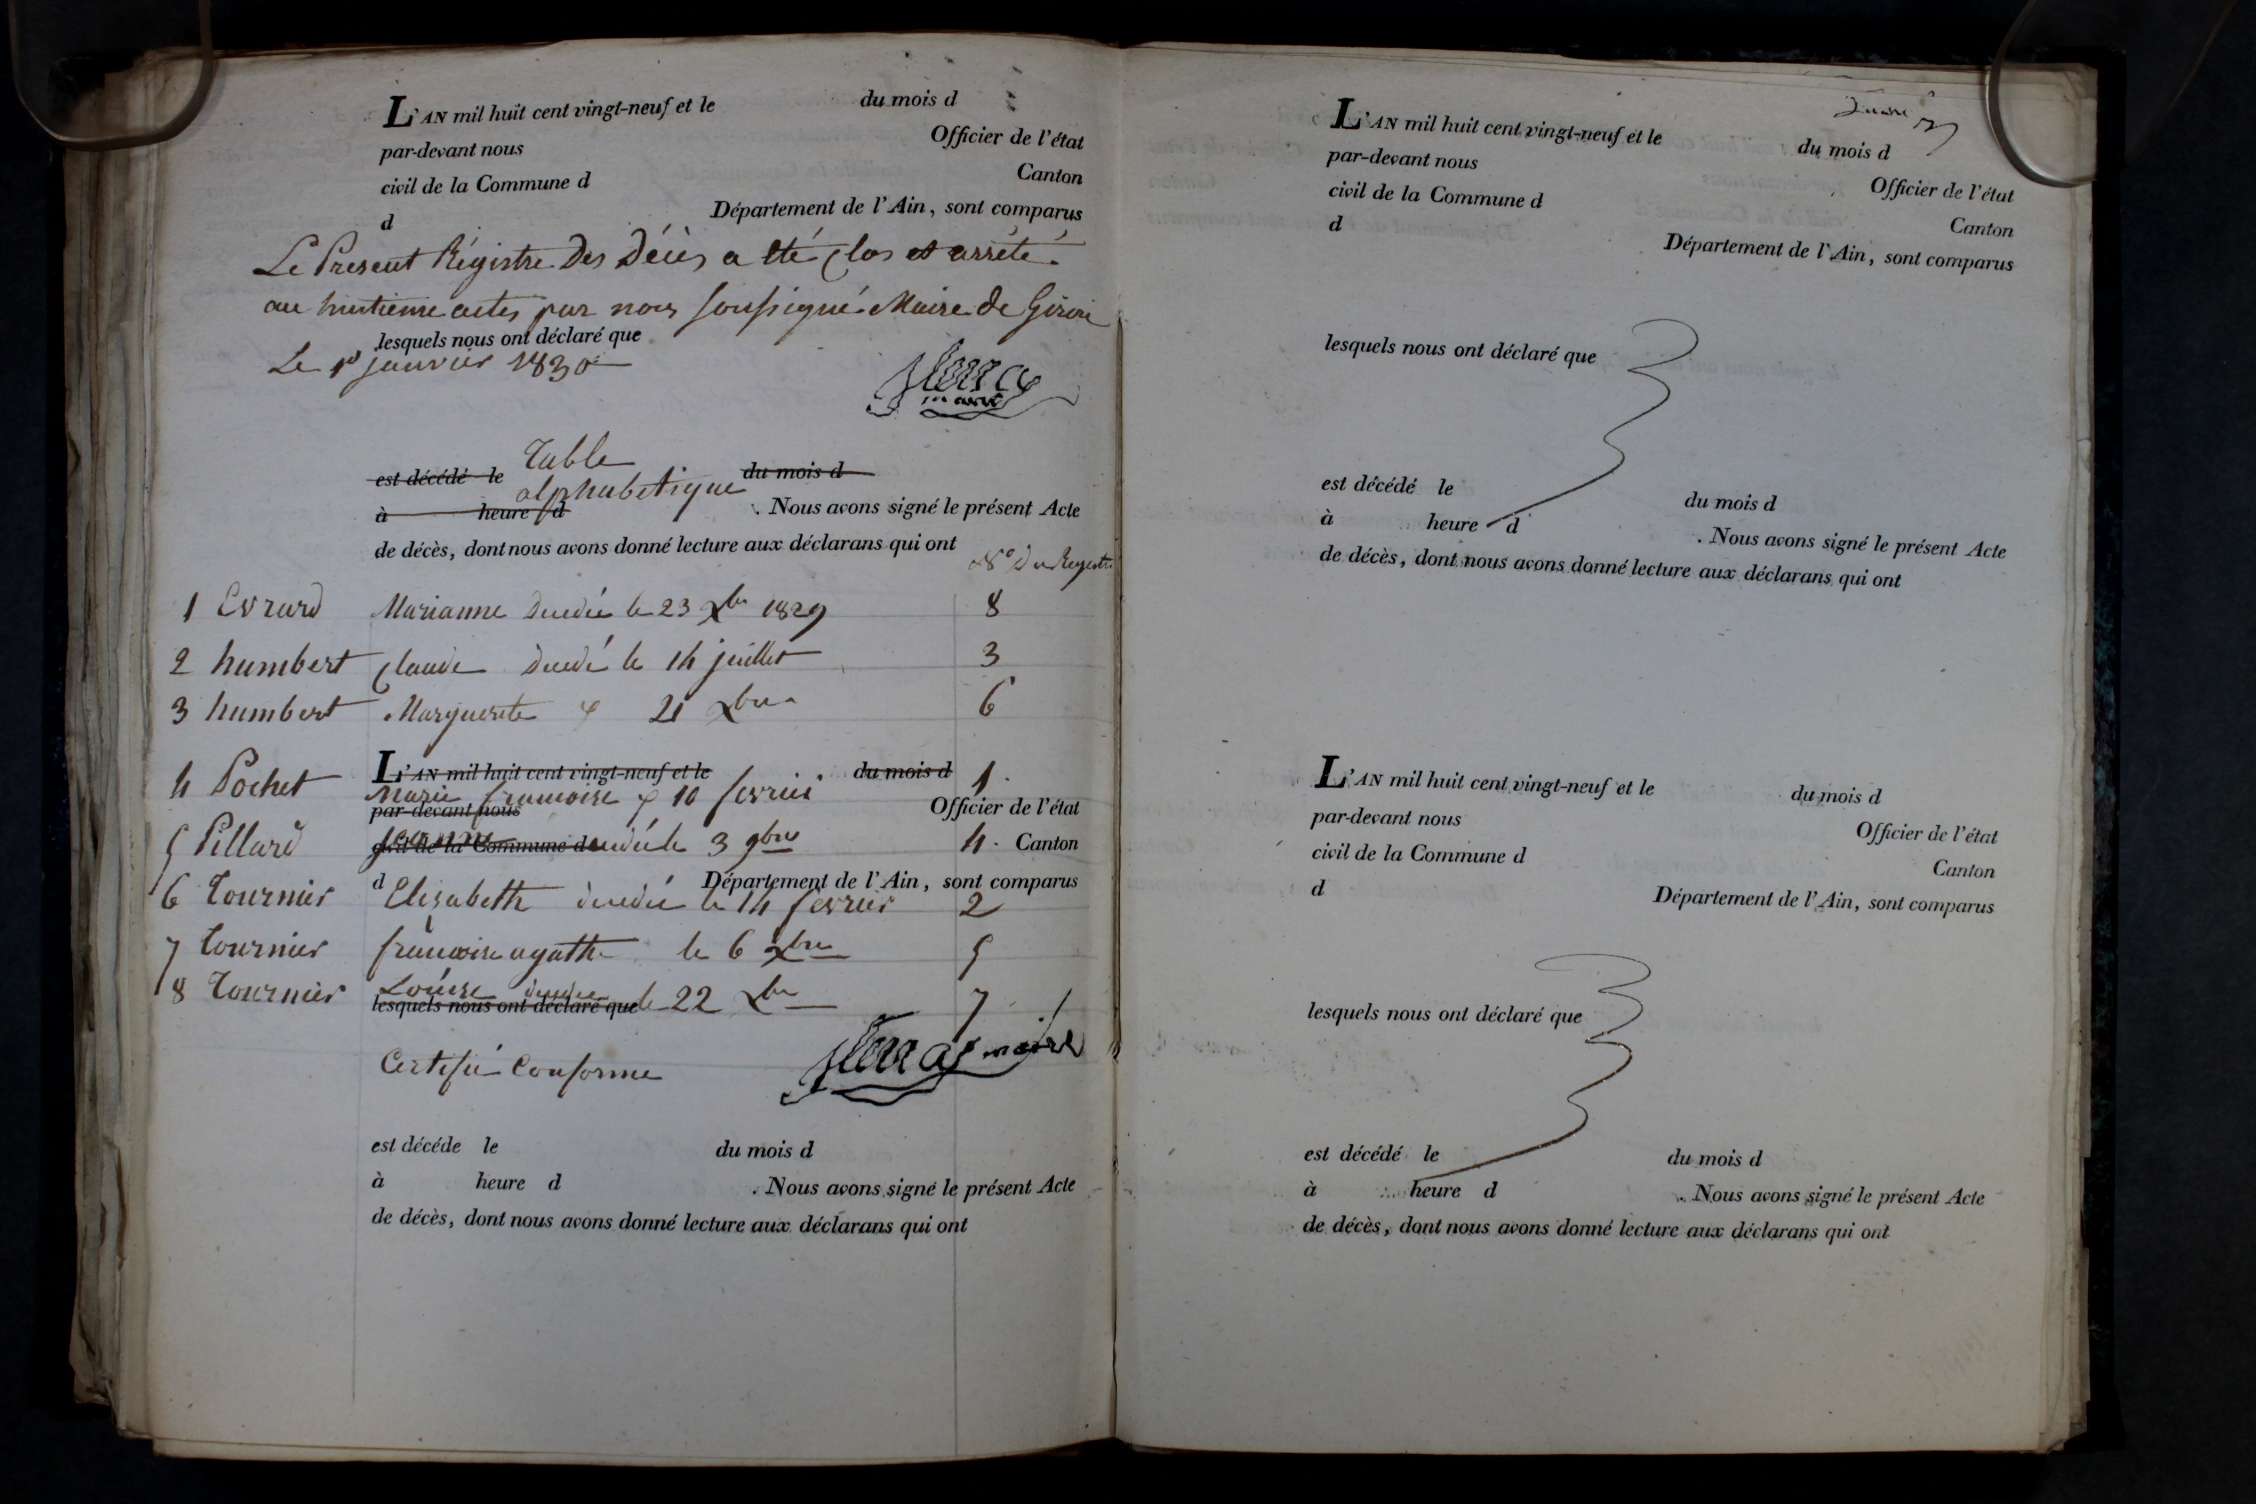 L'AN mil huit cent vingt-neuf et le du mois d
par-devant nous Officier de l'état
civil de la Commune d Canton
d Département de l'Ain, sont comparus
Le Present Régistre Des Décès a été Clos et arrété
au huitieme actes par nous soussigné Maire de Giron
lesquels nous ont déclaré que
Le 1er janvier 1830
maire
Table
est décédé le alphabetique du mois d
à heure d . Nous avons signé le présent Acte
de décès, dont nous avons donné lecture aux déclarans qui ont
N° Du Registre
1 Evrard Marianne Decedée le 23 Xbre 1829 8
2 humbert Claude Decedé le 14 juillet 3
3 humbert Marguerite 21 Xbre 6
L'AN mil huit cent vingt-neuf et le du mois d
4 Pochet Marie francoise 10 fevrier 1.
par-devant nous Officier de l'état
5 Pillard decedé le 3 9bre 4.
civil de la Commune d Canton
d Département de l'Ain, sont comparus
6 Tournier Elisabeth decedée le 14 fevrier 2
7 Tournier francoise agathe le 6 Xbre 5
8 Tournier Louise decedee le 22 Xbre 7
lesquels nous ont déclaré que
Certifié Conforme
maire
est décéde le du mois d
à heure d . Nous avons signé le présent Acte
de décès, dont nous avons donné lecture aux déclarans qui ont
L'AN mil huit cent vingt-neuf et le du mois d
par-devant nous Officier de l'état
civil de la Commune d Canton
d Département de l'Ain, sont comparus
lesquels nous ont déclaré que
est décédé le du mois d
à heure d . Nous avons signé le présent Acte
de décès, dont nous avons donné lecture aux déclarans qui ont
L'AN mil huit cent vingt-neuf et le du mois d
par-devant nous Officier de l'état
civil de la Commune d Canton
d Département de l'Ain, sont comparus
lesquels nous ont déclaré que
est décédé le du mois d
à heure d . Nous avons signé le présent Acte
de décès, dont nous avons donné lecture aux déclarans qui ont